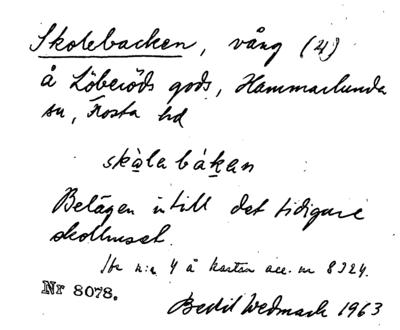 Skolebacken, vång (4)
å Löberöds gods, Hammarlunda
sn, Frosta hd
skàlabákan
Belägen intill det tidigare
skolhuset.
n:r 4 å kartan acc. nr 8324.
Nr 8078.
Bertil Wedmark 1963